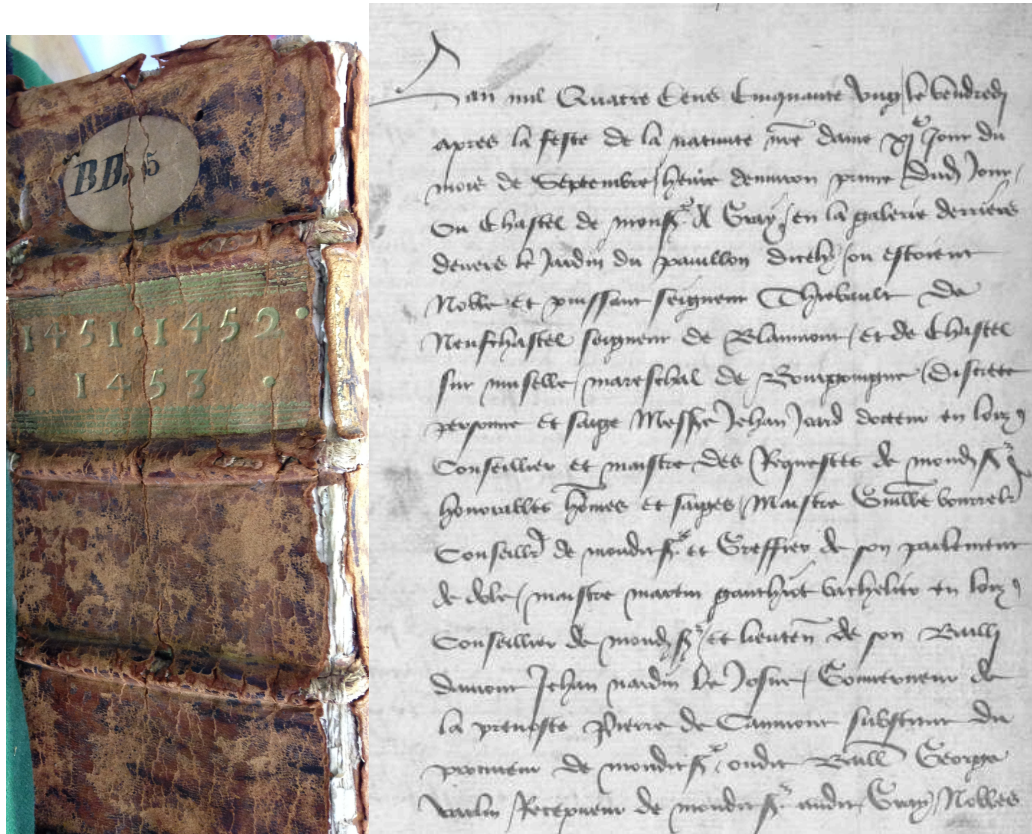 BB. 5
1451·1452·
· 1453 ·
Lan mil Quatre Cens Cinquante Ung / le vendredi
apres la feste de la nativite nre dame xe Jour du
mois de Septembre / heure denviron prime dud Jour /
Ou Chastel de monsr de Gray / en la galerie derriere
devers le Jardin du paveillon dicely / ou estoient
Noble et puissant seigneur Thiebault de
Neufchastel seigneur de Blanmont / et de Chastel
sur muselle / mareschal de Bourgoingne / discrete
personne et saige Messre Jehan Jard docteur en loix
Conseillier et maistre des Requestes de mond sr
honorables homes et saiges / Maistre Guille bourrel
Conseillr de mondit sr et Greffier de son parlement
de dole / maistre martin gauthiot bachelier en loix
Conseillier de mond sr / et lieuten de son Bailli
damont Jehan nardin de / Gouverneur de
la prevoste Pierre de substitut du
procureur de mondit sr oudit Baill George
Recepveur de mondit sr audit Gray / Nobles